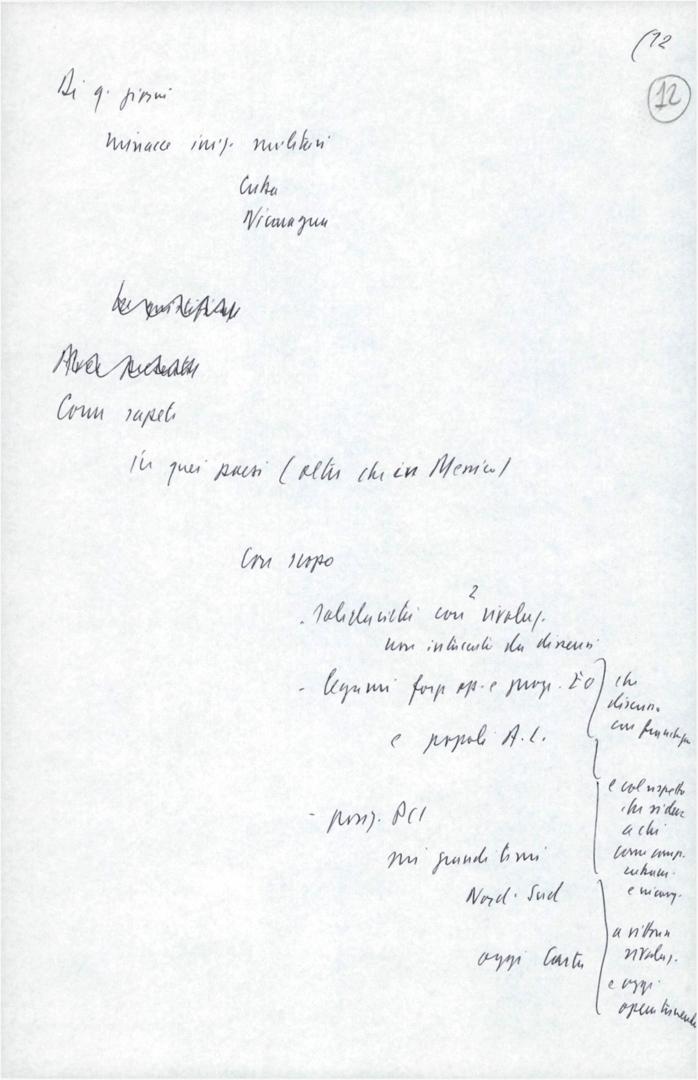 (12
12
Di q. giorni
minacce inig. militari
Cuba
Nicaragua
Come sapete
In quei paesi (oltre che in Messico)
Con scopo
. solidarietà con 2 rivoluz.
non intaccata da dissensi
- legami forze op. e prog. EO
e popoli A.L.
che
discusso
con franchezza
- posiz. PCI
sui grandi temi
Nord-Sud
oggi
e col rispetto
che si deve
a chi
come comp.
cubani
e nicarag.
rivoluz.
e oggi